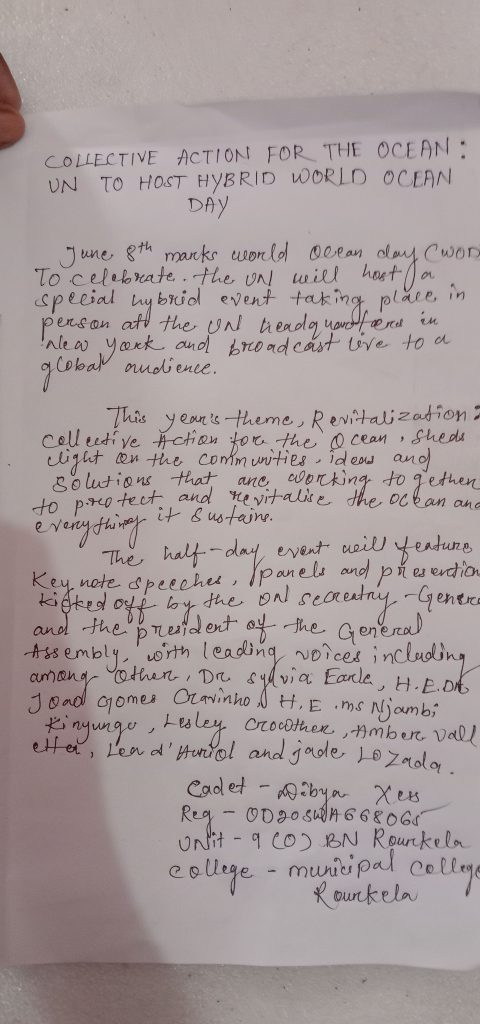 COLLECTIVE ACTION FOR THE OCEAN:
UN TO HOST HYBRID WORLD OCEAN
DAY
June 8th marks world Ocean day (WOD
To celebrate. the UN will host a
special hybrid event taking place in
person att the UN headquarters in
New York and broadcast live to a
global audience.
This year's theme, Revitalization:
collective Action for the Ocean, sheds
light on the communities, ideas and
solutions that are working together
to protect and revitalise the ocean and
everything it sustains.
The half-day event will feature
Key note speeches, panels and presention
kicked off by the UN secreatry-Genera
and the president of the General
Assembly, with leading voices including
among Other, Dr. sylvia Earle, H.E.DR
Joao Gomes Cravinho, H.E.ms Njambi
Kinyungu, Lesley Crowther, Amber Vall
etta, Lea d'Auriol and jade Lozada.
Cadet - Dibya Xess
Reg - OD20SWA668065
UNit - 9 (O) BN Rourkela
college - municipal college
Rourkela